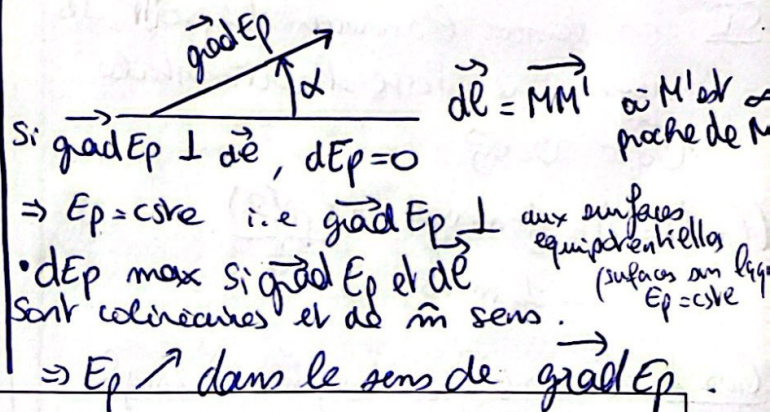 grad Ep
α
dl = MM' où M' est ∞
proche de M
Si grad Ep ⊥ dl, dEp=0
⇒ Ep = cste i.e grad Ep ⊥ aux surfaces
equipotentielles
(surfaces sur lesq
Ep = cste
• dEp max si grad Ep et dl
sont colinéaires et de m̂ sens.
⇒ Ep ↗ dans le sens de grad Ep.